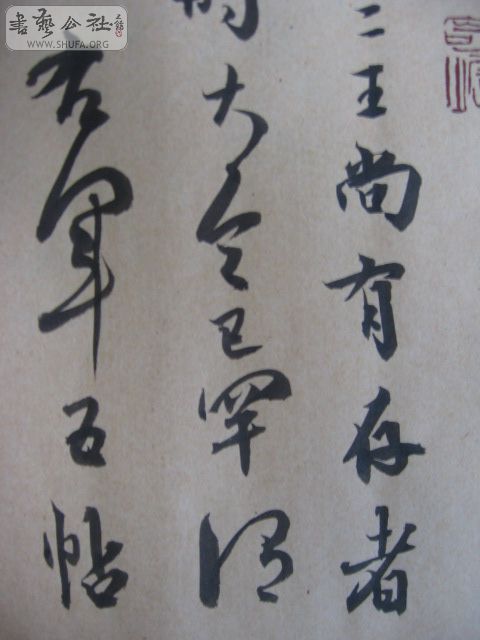 書藝公社
WWW.SHUFA.ORG
二王尚有存者
大令已罕得
右軍五帖